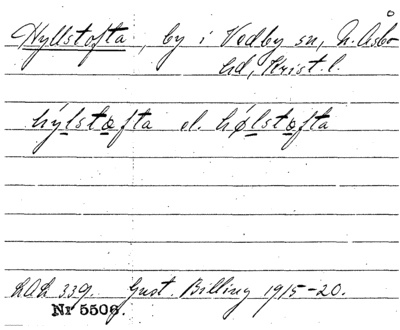 Hyllstofta, by i Vedby sn, N. Åsbo
hd, Krist. l.
hýlstofta el. hǿlstofta
LAL 339. Gust. Billing 1915-20.
Nr 5506.